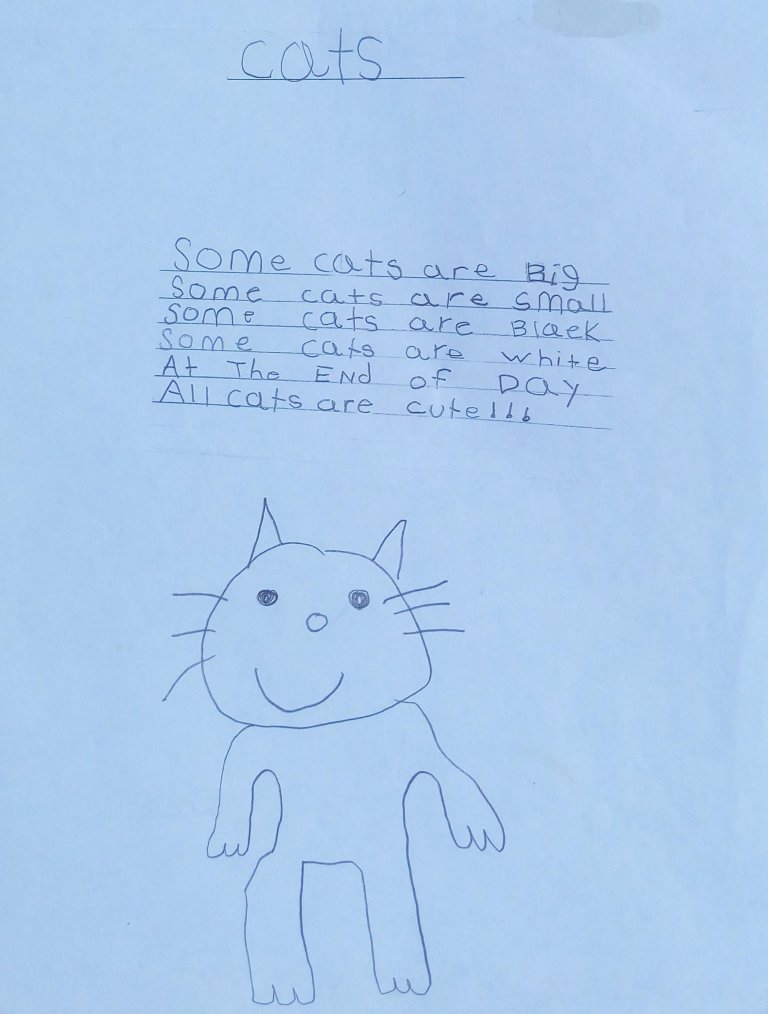 cats
Some cats are Big
Some cats are small
Some cats are Black
Some cats are white
At The END of DAY
All cats are cute!!!